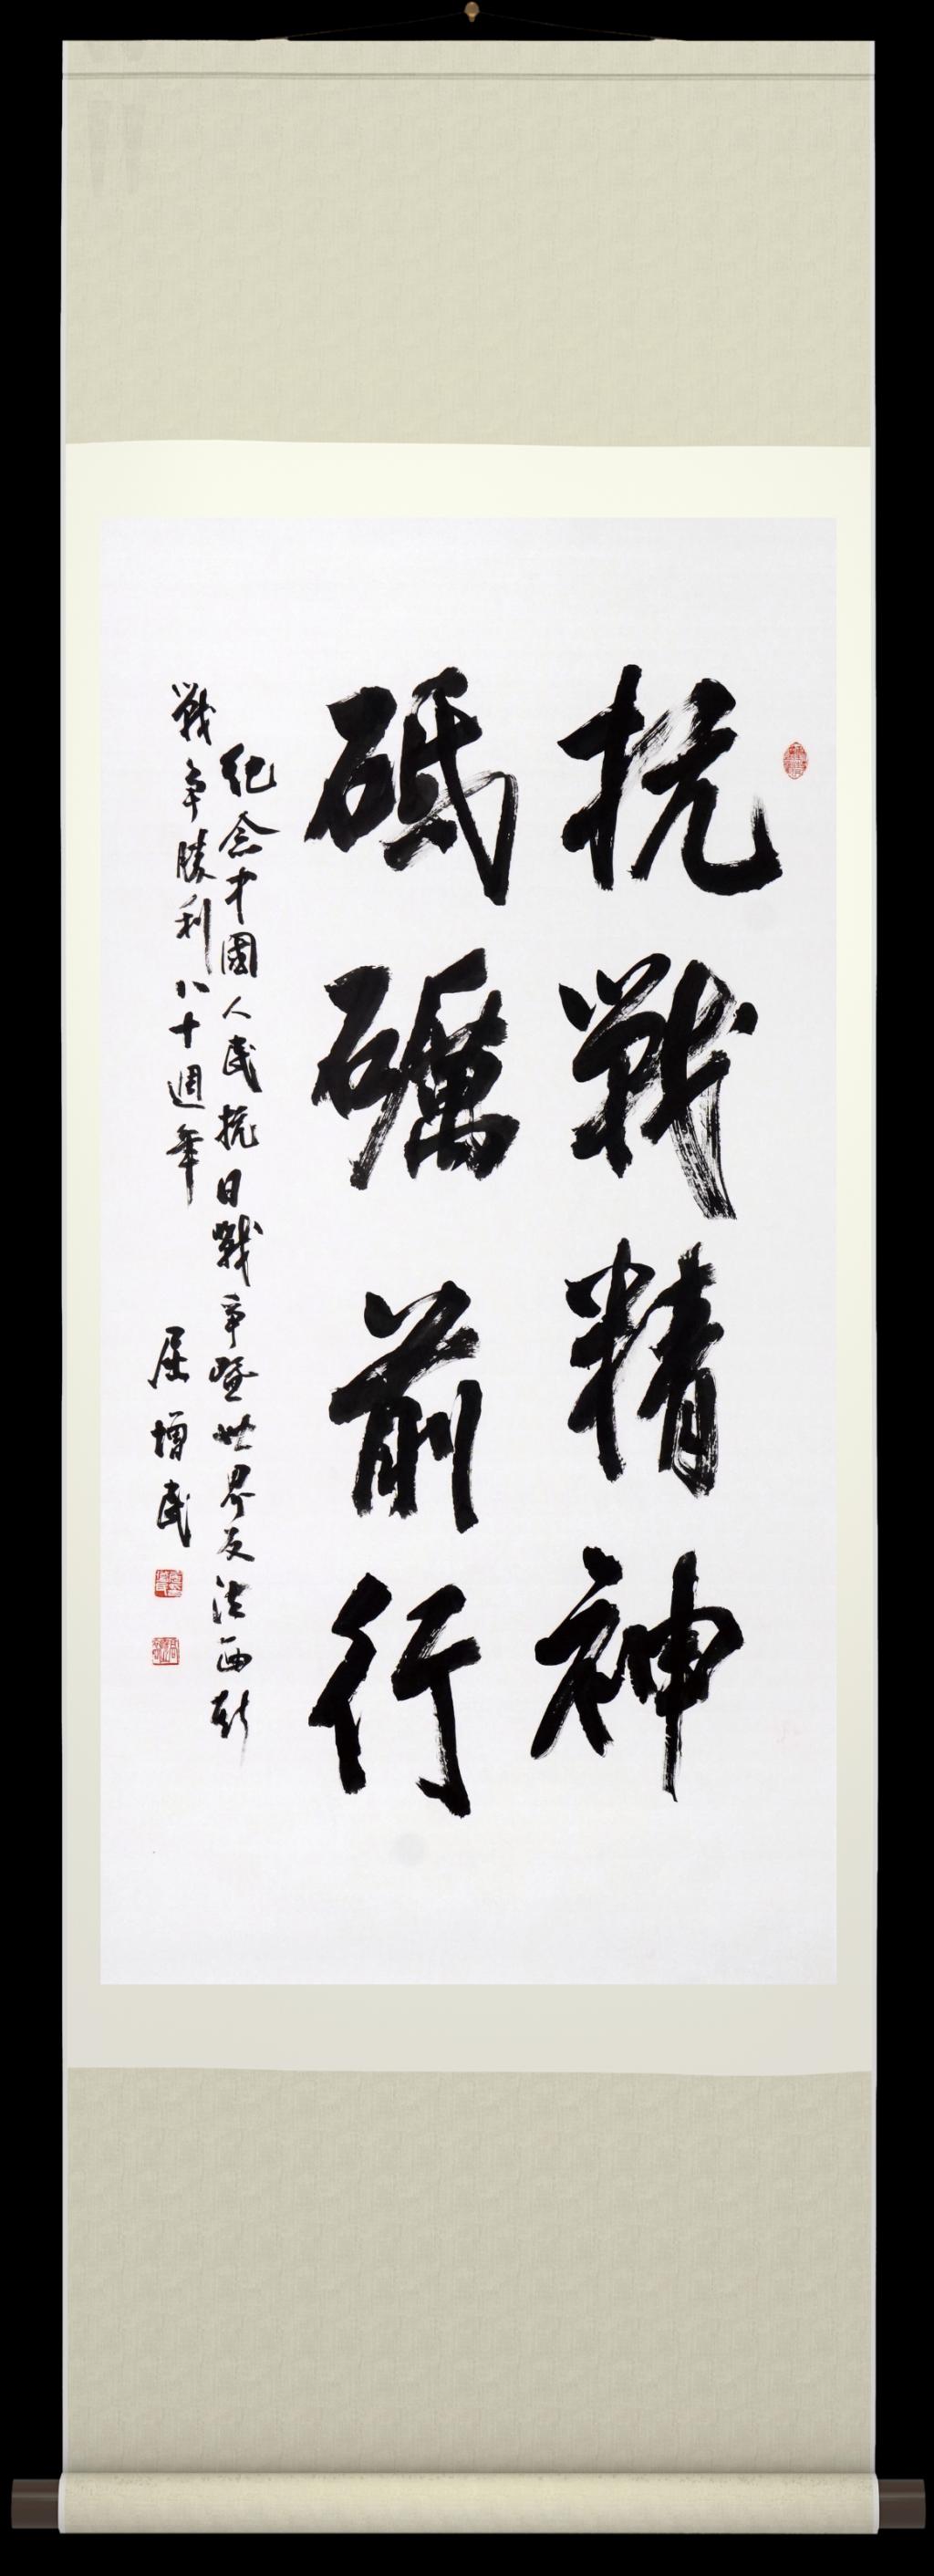 抗戰精神
砥礪前行
纪念中國人民抗日戰争暨世界反法西斯
戰争勝利八十週年
屈增民